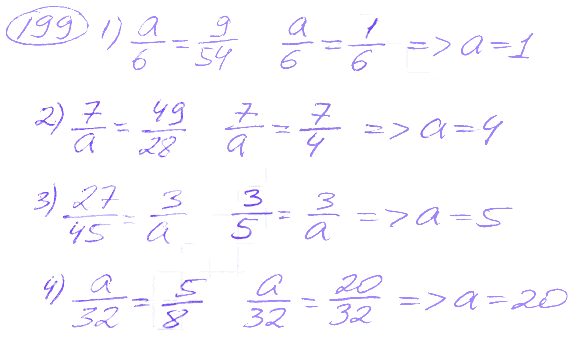 199 1) a/6 = 9/54 a/6 = 1/6 => a = 1
2) 7/a = 49/28 7/a = 7/4 => a = 4
3) 27/45 = 3/a 3/5 = 3/a => a = 5
4) a/32 = 5/8 a/32 = 20/32 => a = 20